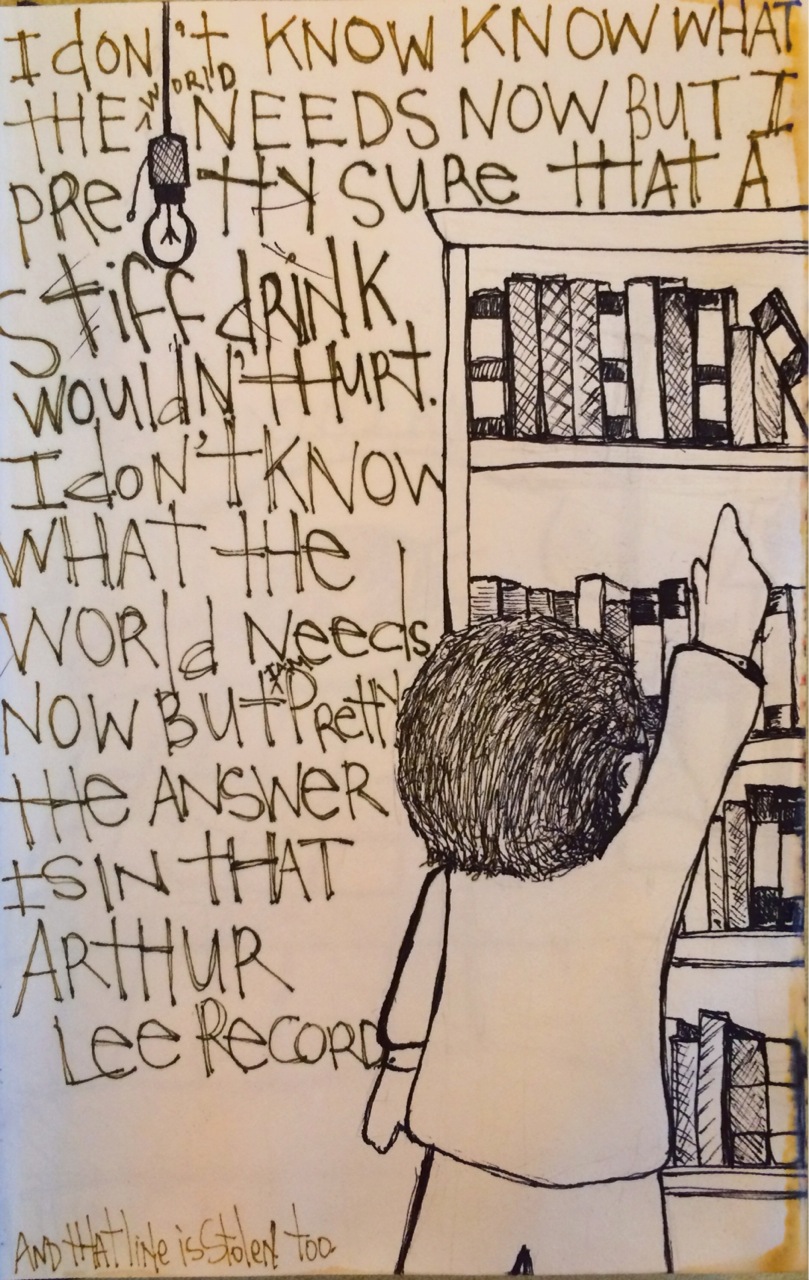 I don't KNOW KNOW WHAT
THE WORLD NEEDS NOW BUT I
PRETTY SURE THAT A
Stiff dRINK
WOUldN'T HURT.
I don't KNOW
WHAT THe
WORld Needs
NOW BUT I'M PRettY
tHe ANSWER
IS IN tHAT
ARTHUR
Lee RECORD
AND tHAt liNe is Stolen too.